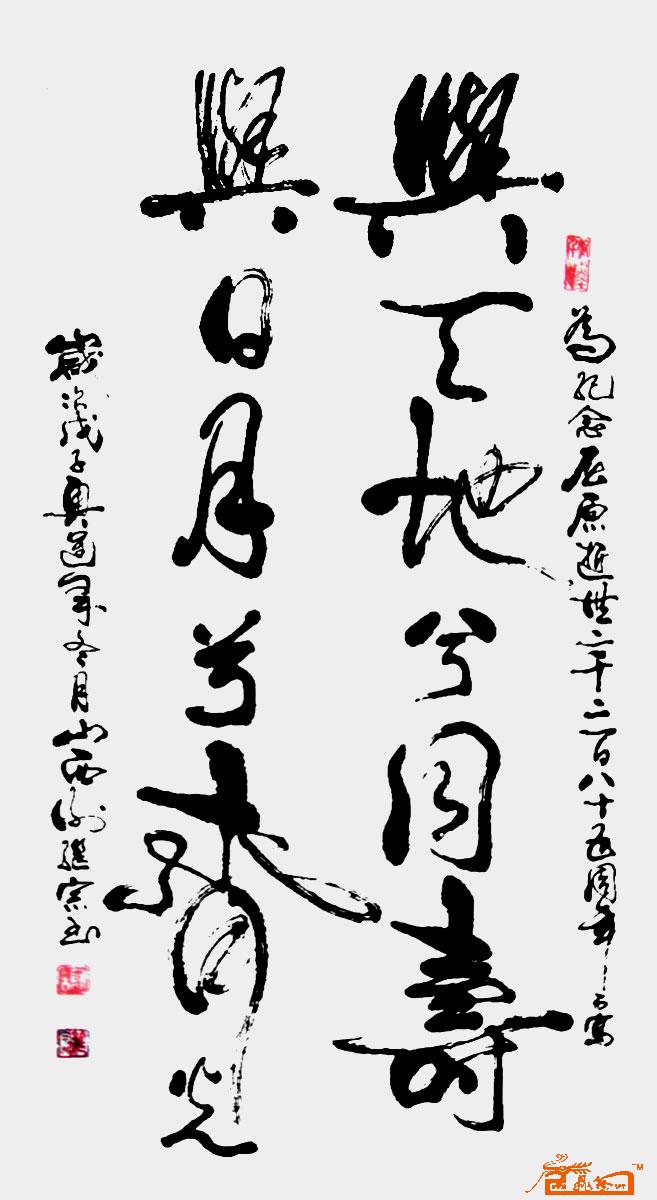 為紀念屈原逝世二千二百八十五周年而寫
與天地兮同壽
與日月兮齊光
歲次戊子奧運年冬月山西謝繼宗書